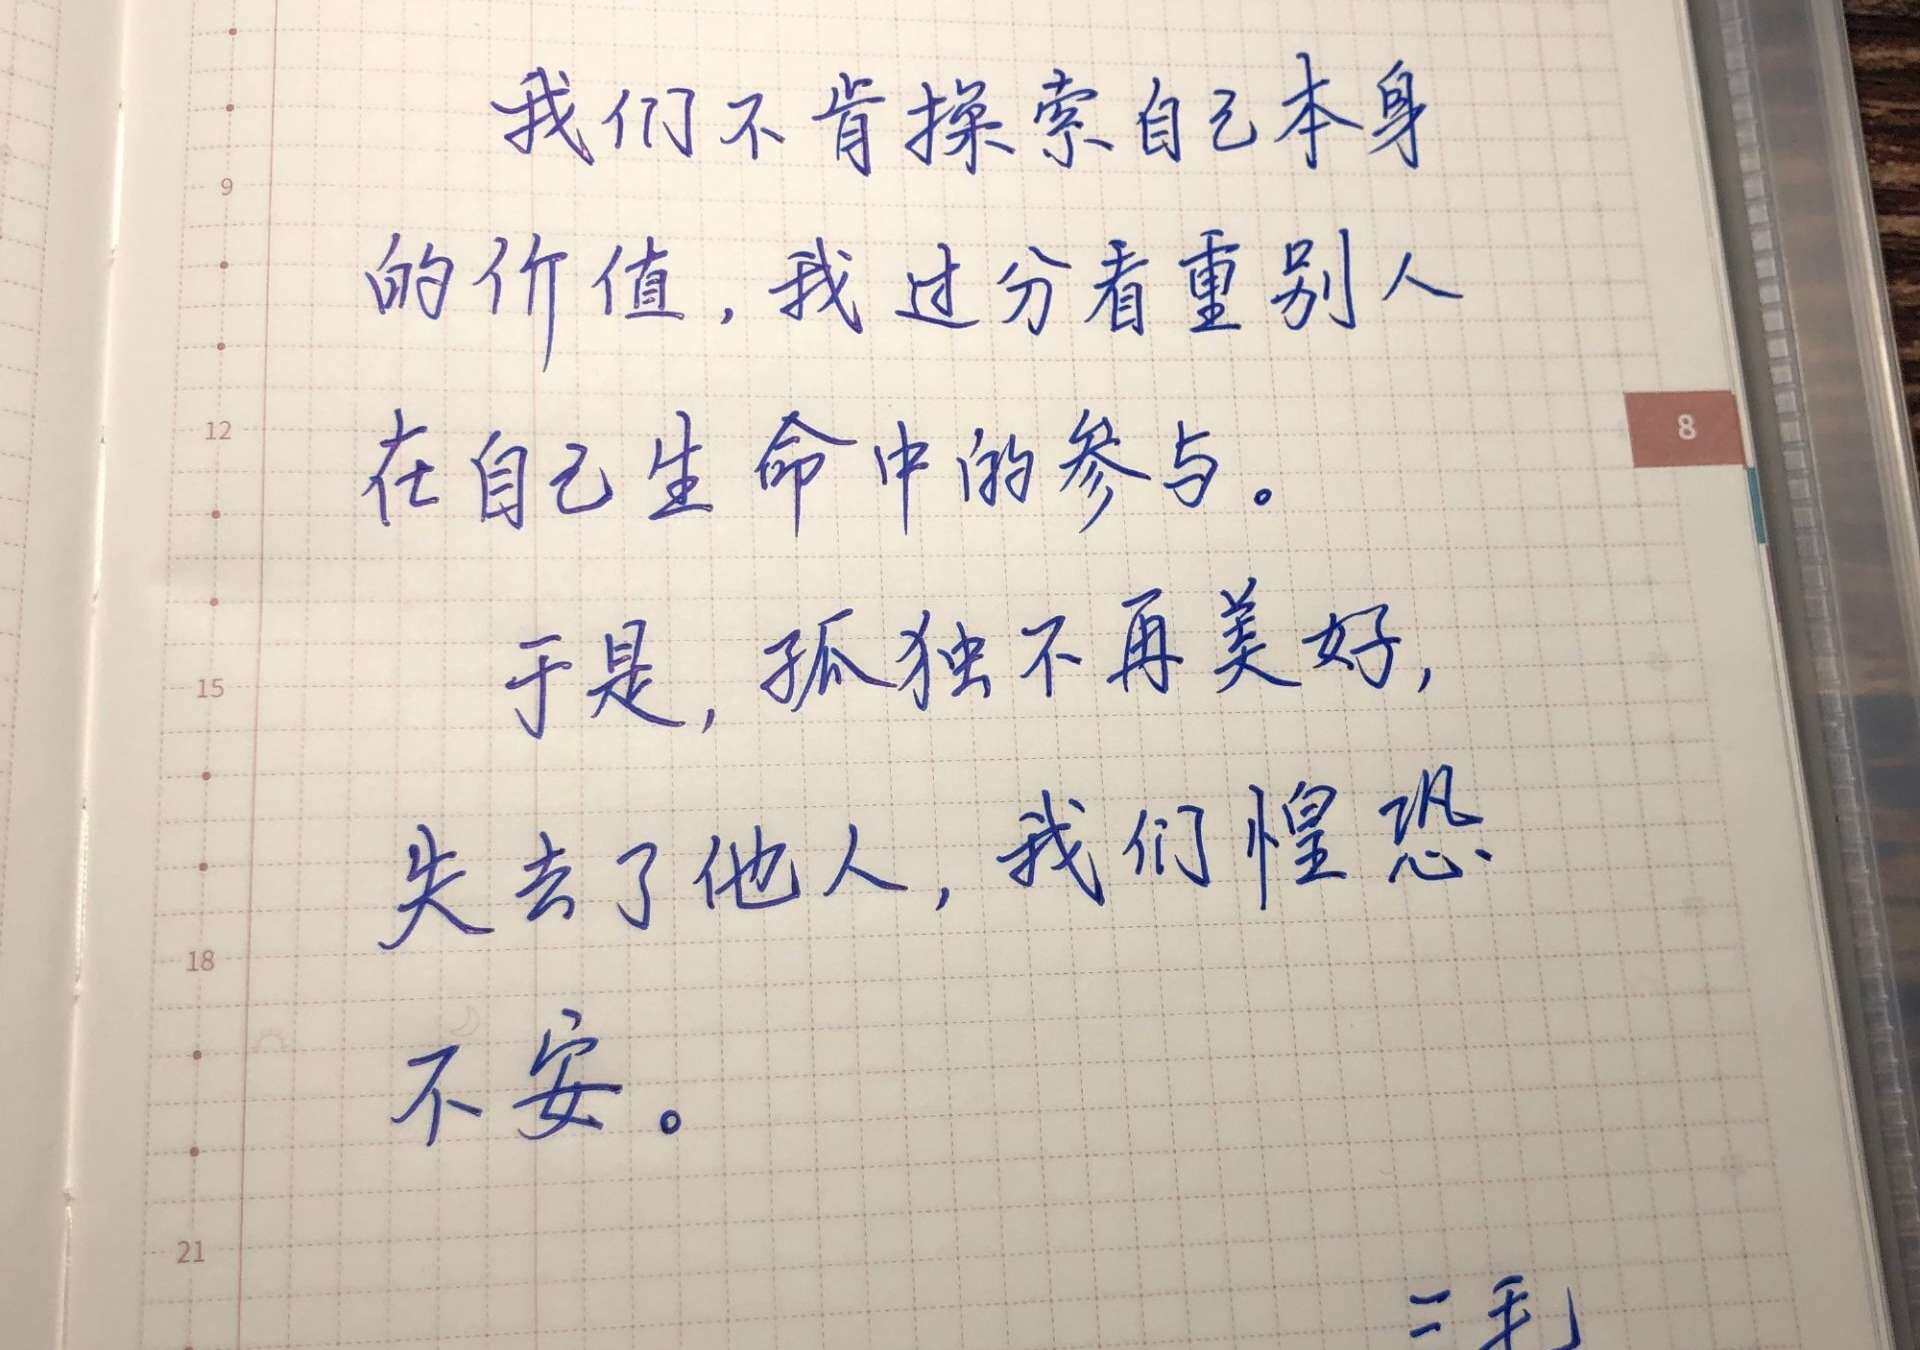 我们不肯操索自己本身
9
的价值，我过分看重别人
12
8
在自己生命中的参与。
15
于是，孤独不再美好，
失去了他人，我们惶恐
18
不安。
21
三毛